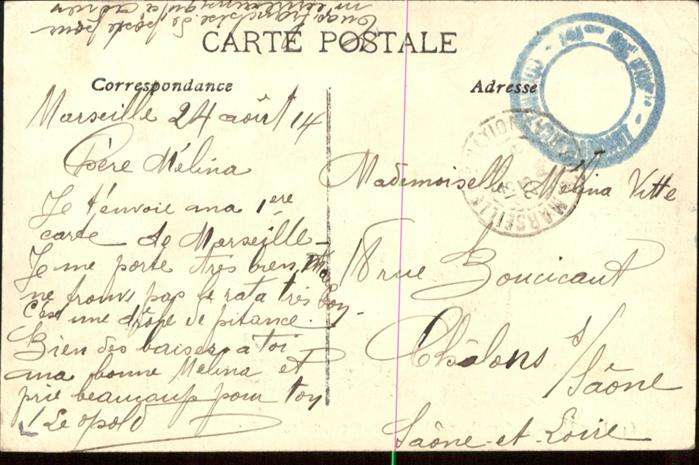 CARTE POSTALE
Correspondance
Marseille 24 août 14
Chère Mélina
Je t'envoie ma 1ère
carte de Marseille
Je me porte très bien,
ne trouve pas le rata très bon.
C'est une drôle de pitance.
Bien des baisers a toi
ma bonne Mélina et
prie beaucoup pour ton
Léopold
Adresse
MARSEILLE
Mademoiselle Mélina Vitte
18 rue Boucicaut
Châlons s/
Saône
Saône-et-Loire